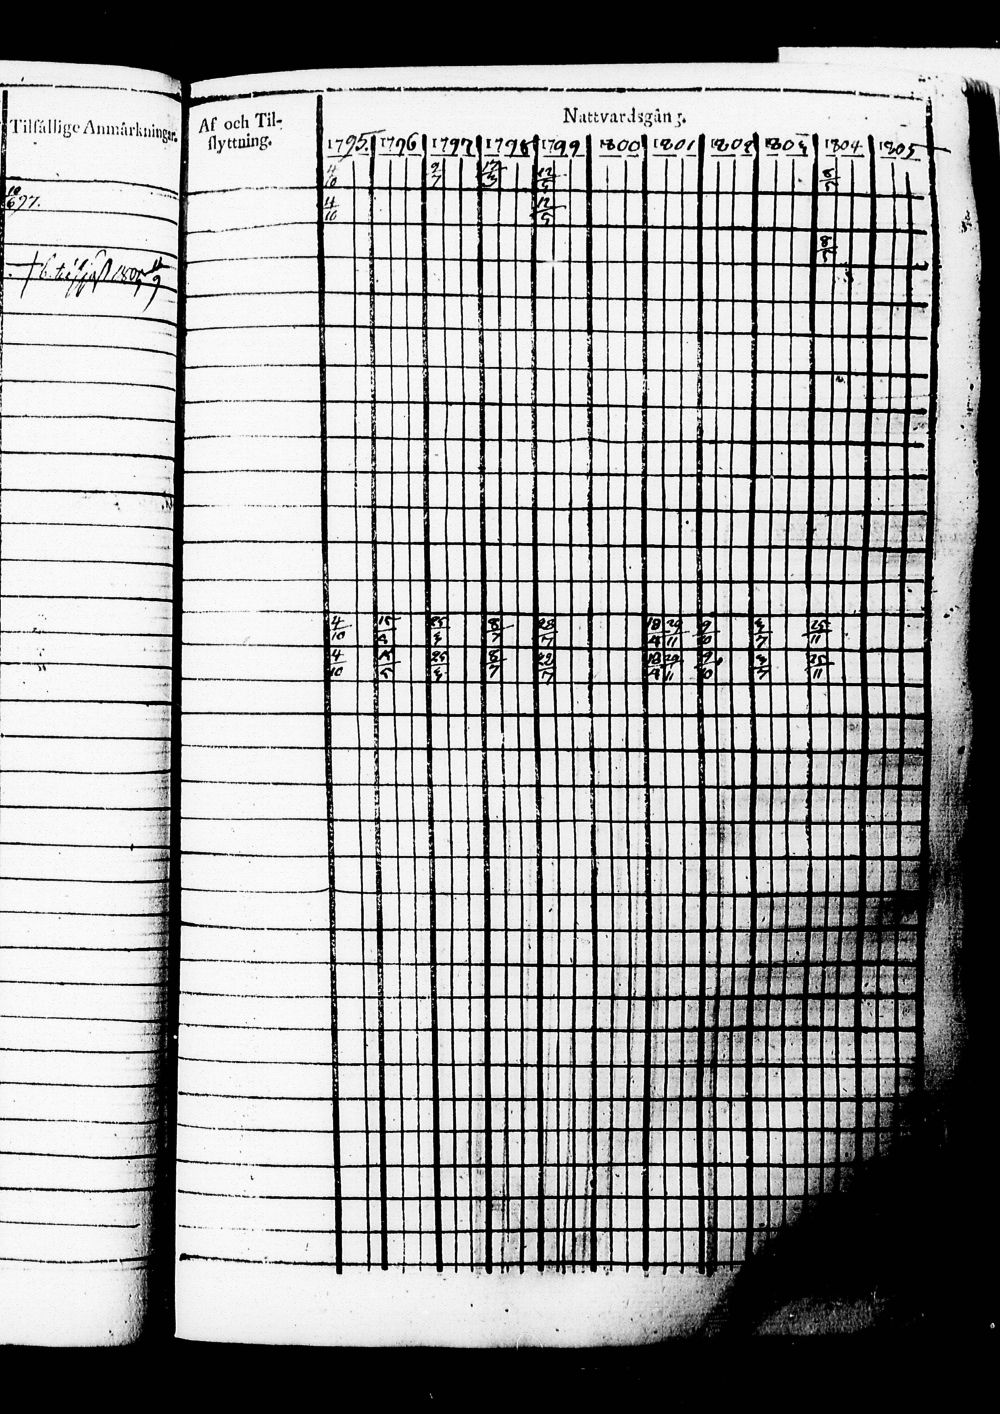 Tilfällige Anmärkningar.
10/6 97.
1805
Af och Til-
flyttning.
Nattvardsgång.
1795. 1796 1797 1798 1799 1800 1801 1802 1803 1804 1805
4/10 2/7 17/3 12/5 8/5
4/10 12/5
8/5
4/10 25/3 8/7 18/4 29/11 9/10 3/7 25/11
4/10 25/3 8/7 22/7 18/4 29/11 9/10 3/7 25/11